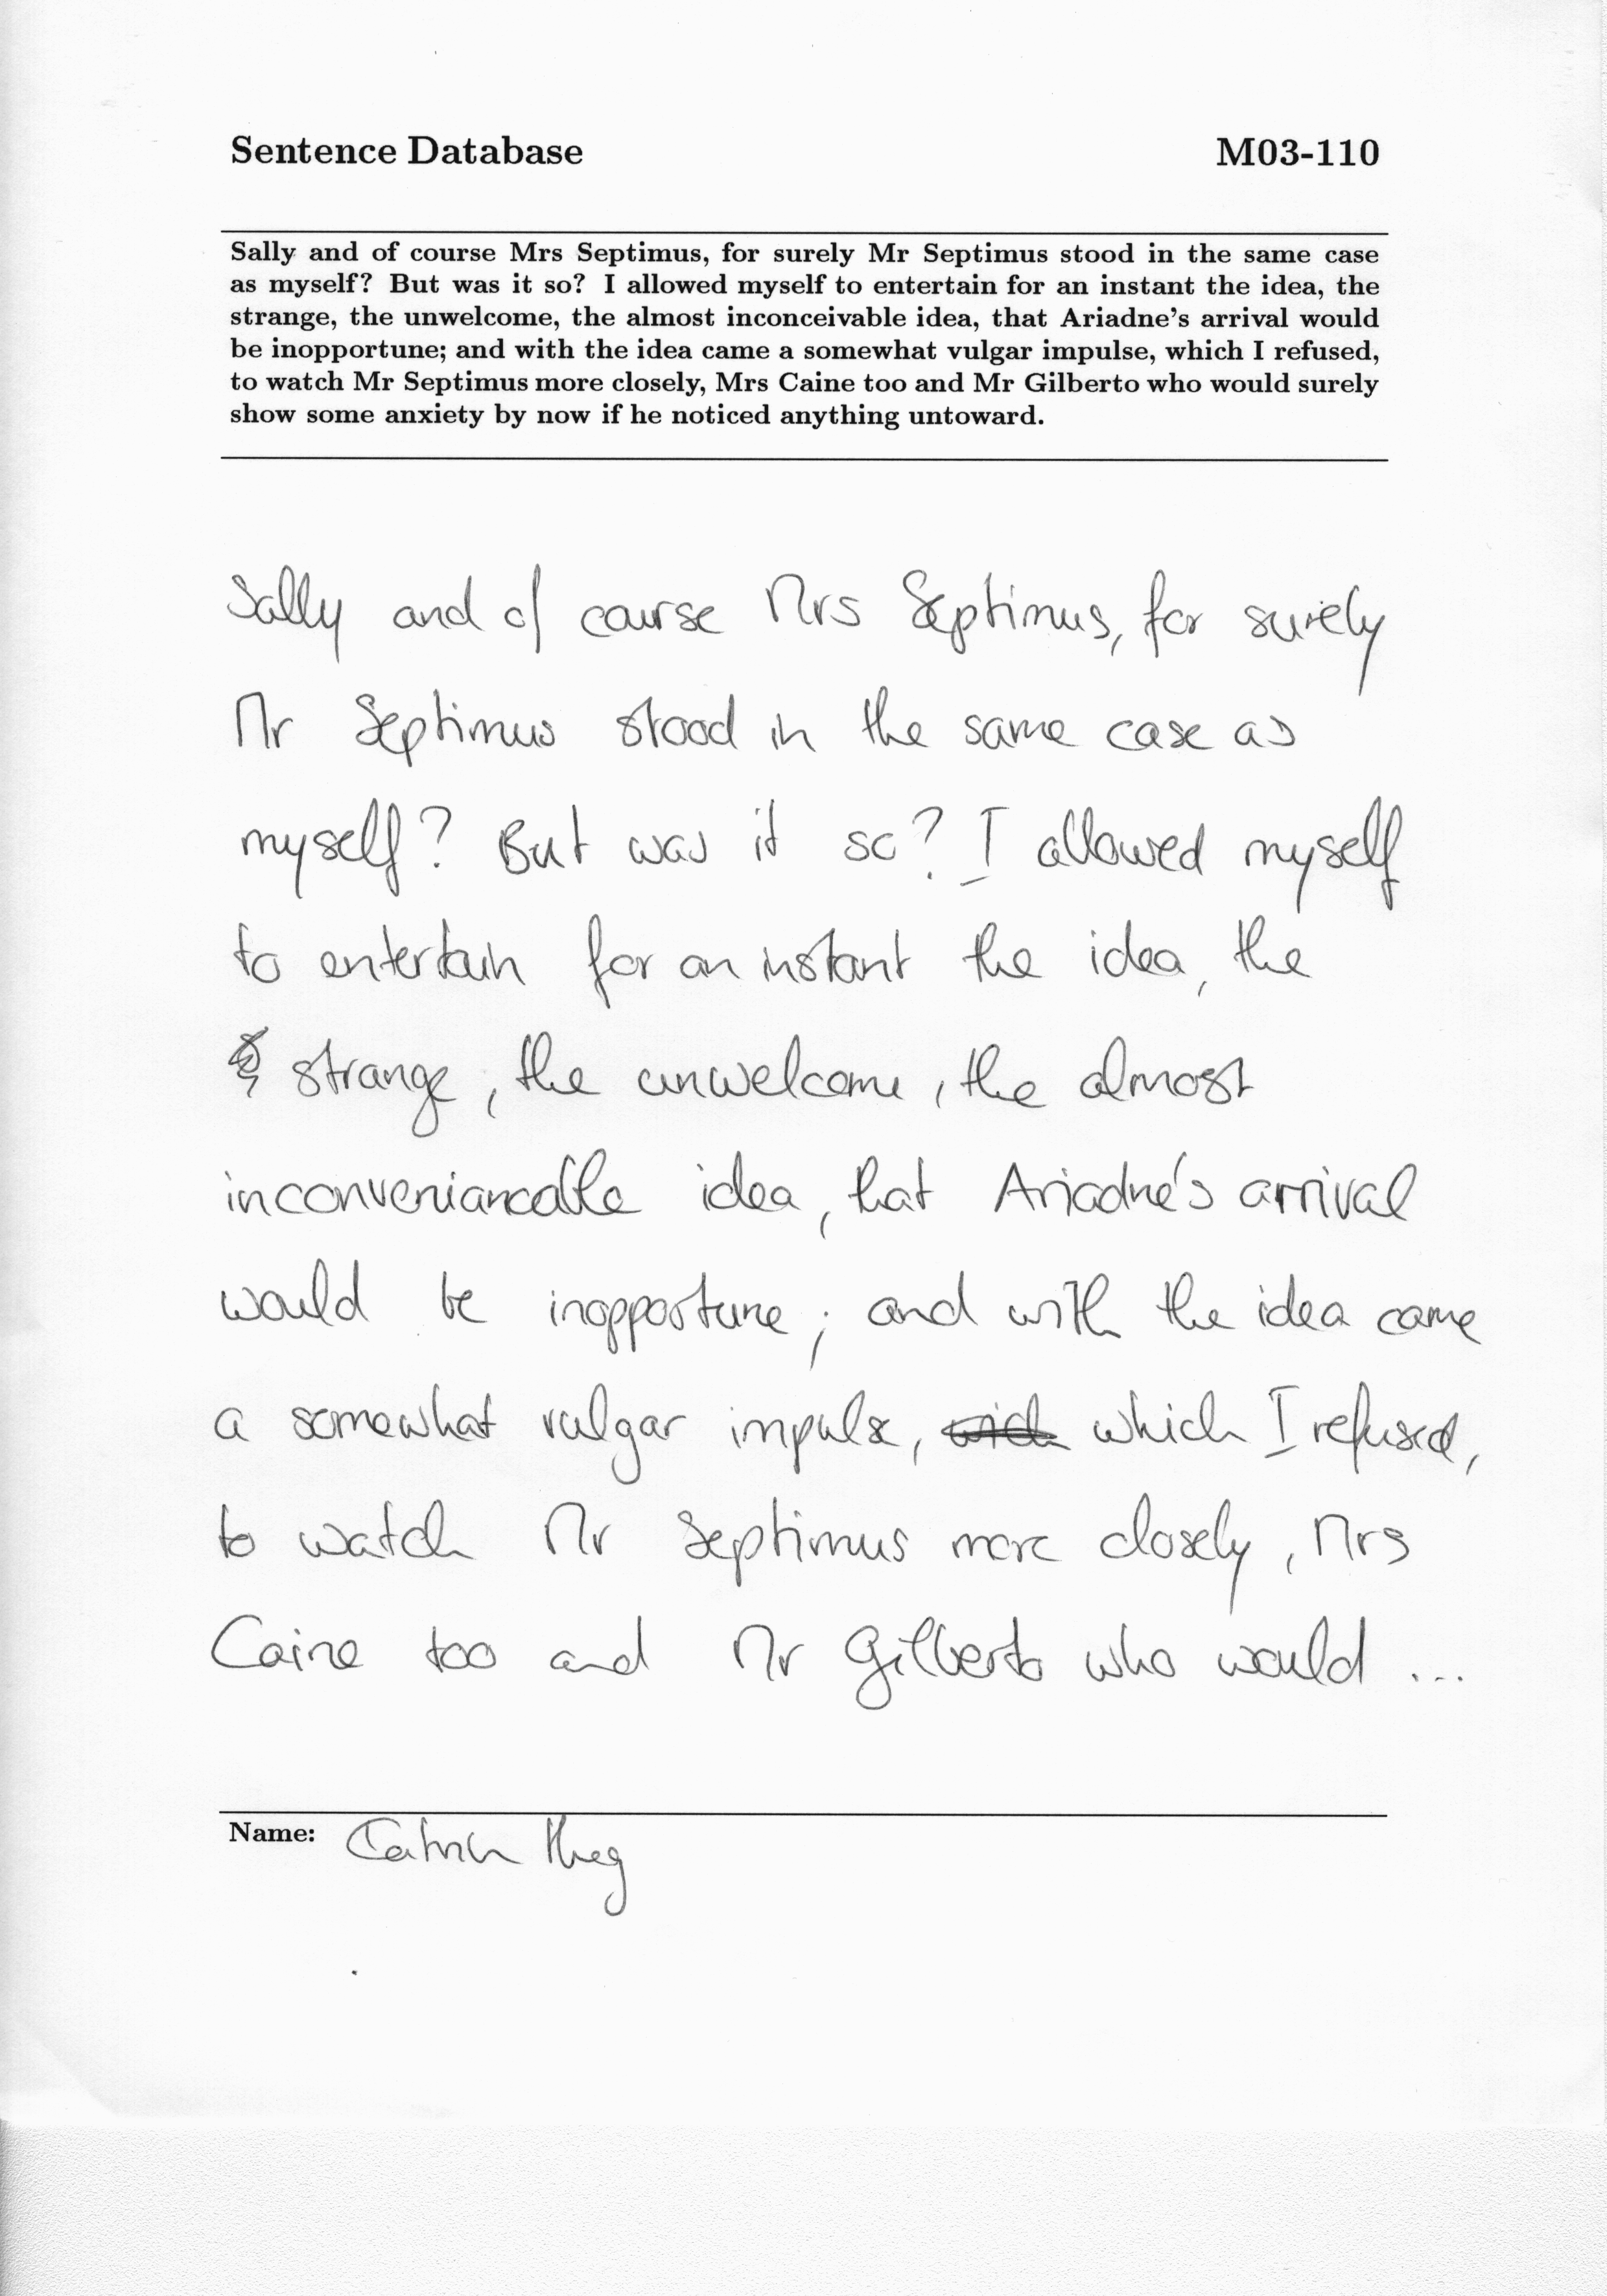 Sentence Database M03-110
Sally and of course Mrs Septimus, for surely Mr Septimus stood in the same case
as myself? But was it so? I allowed myself to entertain for an instant the idea, the
strange, the unwelcome, the almost inconceivable idea, that Ariadne's arrival would
be inopportune; and with the idea came a somewhat vulgar impulse, which I refused,
to watch Mr Septimus more closely, Mrs Caine too and Mr Gilberto who would surely
show some anxiety by now if he noticed anything untoward.
Sally and of course Mrs Septimus, for surely
Mr Septimus stood in the same case as
myself? But was it so? I allowed myself
to entertain for an instant the idea, the
strange, the unwelcome, the almost
inconveniancable idea, that Ariadne's arrival
would be inopportune; and with the idea came
a somewhat vulgar impulse, which I refused,
to watch Mr Septimus more closely, Mrs
Caine too and Mr Gilberto who would ...
Name: